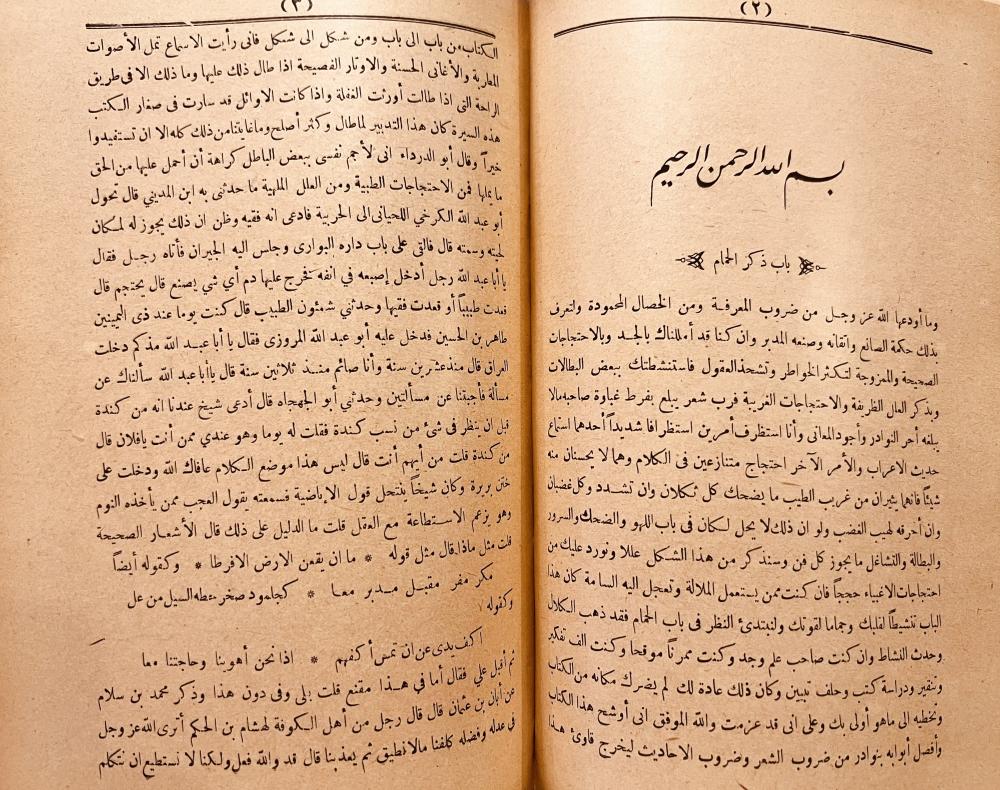 (٢)
بسم الله الرحمن الرحيم
باب ذكر الحمام
وما أودعها الله عز وجل من ضروب المعرفة ومن الخصال المحمودة ولتعرف
بذلك حكمة الصانع واتقانه وصنعه المدبر وان كنا قد أمللناك بالجد وبالاحتجاجات
الصحيحة والممزوجة لتكثر الخواطر وتشحذ العقول فاستنشطتك ببعض البطالات
وبذكر العلل الظريفة والاحتجاجات الغريبة فرب شعر يبلغ بفرط غباوة صاحبه مالا
يبلغه أحر النوادر وأجود المعانى وأنا استظرف أمرين استظرافا شديداً أحدهما استماع
حديث الاعراب والأمر الآخر احتجاج متنازعين فى الكلام وهما لا يحسنان منه
شيئاً فانهما يثيران من غريب الطيب ما يضحك كل ثكلان وان تشدد وكل غضبان
وان أحرقه لهيب الغضب ولو ان ذلك لا يحل لكان فى باب اللهو والضحك والسرور
والبطالة والتشاغل ما يجوز كل فن وسنذكر من هذا الشكل عللا ونورد عليك من
احتجاجات الاغبياء حججاً فان كنت ممن يستعمل الملالة وتعجل اليه السامة كان هذا
الباب تنشيطاً لقلبك وجماما لقوتك ولنبتدئ النظر فى باب الحمام فقد ذهب الكلال
وحدث النشاط وان كنت صاحب علم وجد وكنت ممرناً موقحا وكنت الف تفكير
وتنقير ودراسة كتب وحلف تبيين وكان ذلك عادة لك لم يضرك مكانه من الكتاب
وتخطيه الى ماهو أولى بك وعلى انى قد عزمت والله الموفق انى أوشح هذا الكتاب
وأفصل أبوابه بنوادر من ضروب الشعر وضروب الاحاديث ليخرج قاوئ هذا
(٣)
الكتاب من باب الى باب ومن شكل الى شكل فانى رأيت الاسماع تمل الأصوات
المطربة والأغانى الحسنة والاوتار الفصيحة اذا طال ذلك عليها وما ذلك الا فى طريق
الراحة التى اذا طالت أورثت الغفلة واذا كانت الاوائل قد سارت فى صغار الكتب
هذه السيرة كان هذا التدبير لما طال وكثر أصلح وما غايتنا من ذلك كله الا ان تستفيدوا
خيراً وقال أبو الدرداء انى لأجم نفسى ببعض الباطل كراهة أن أحمل عليها من الحق
ما يملها فمن الاحتجاجات الطيبة ومن العلل الملهية ما حدثنى به ابن المدينى قال تحول
أبو عبد الله الكرخي اللحيانى الى الحربية فادعى انه فقيه وظن ان ذلك يجوز له لمكان
لحيته وسمته قال فالقى على باب داره البوارى وجلس اليه الجيران فأتاه رجل فقال
يا أبا عبد الله رجل أدخل إصبعه في انفه فخرج عليها دم أي شي يصنع قال يحتجم قال
قعدت طبيباً أو قعدت فقيها وحدثنى شمئون الطبيب قال كنت يوما عند ذى اليمينين
طاهر بن الحسين فدخل عليه أبو عبد الله المروزى فقال يا أبا عبد الله مذ كم دخلت
العراق قال منذ عشرين سنة وأنا صائم منذ ثلاثين سنة قال يا أبا عبد الله سألناك عن
مسألة فأجبتنا عن مسألتين وحدثنى أبو الجهجاه قال أدعى شيخ عندنا انه من كندة
قبل ان ينظر فى شئ من نسب كندة فقلت له يوما وهو عندي ممن أنت يا فلان قال
من كندة قلت من أيهم أنت قال ليس هذا موضع الكلام عافاك الله ودخلت على
ختن بربرة وكان شيخاً ينتحل قول الإباضية فسمعته يقول العجب ممن يأخذه النوم
وهو يزعم الاستطاعة مع العقل قلت ما الدليل على ذلك قال الأشعار الصحيحة
قلت مثل ماذا قال مثل قوله * ما ان يقعن الارض الا فرطا * وكقوله أيضاً
مكر مفر مقبل مدبر معا * كجلمود صخر حطه السيل من عل
وكقوله
اكف يدى عن ان تمس أكفهم * اذا نحن أهوينا وحاجتنا معا
ثم أقبل علي فقال أما في هذا مقنع قلت بلى وفى دون هذا وذكر محمد بن سلام
عن أبان بن عثمان قال قال رجل من أهل الكوفة لهشام بن الحكم أترى الله عز وجل
فى عدله وفضله كلفنا مالا نطيق ثم يعذبنا قال قد والله فعل ولكنا لا نستطيع ان نتكلم